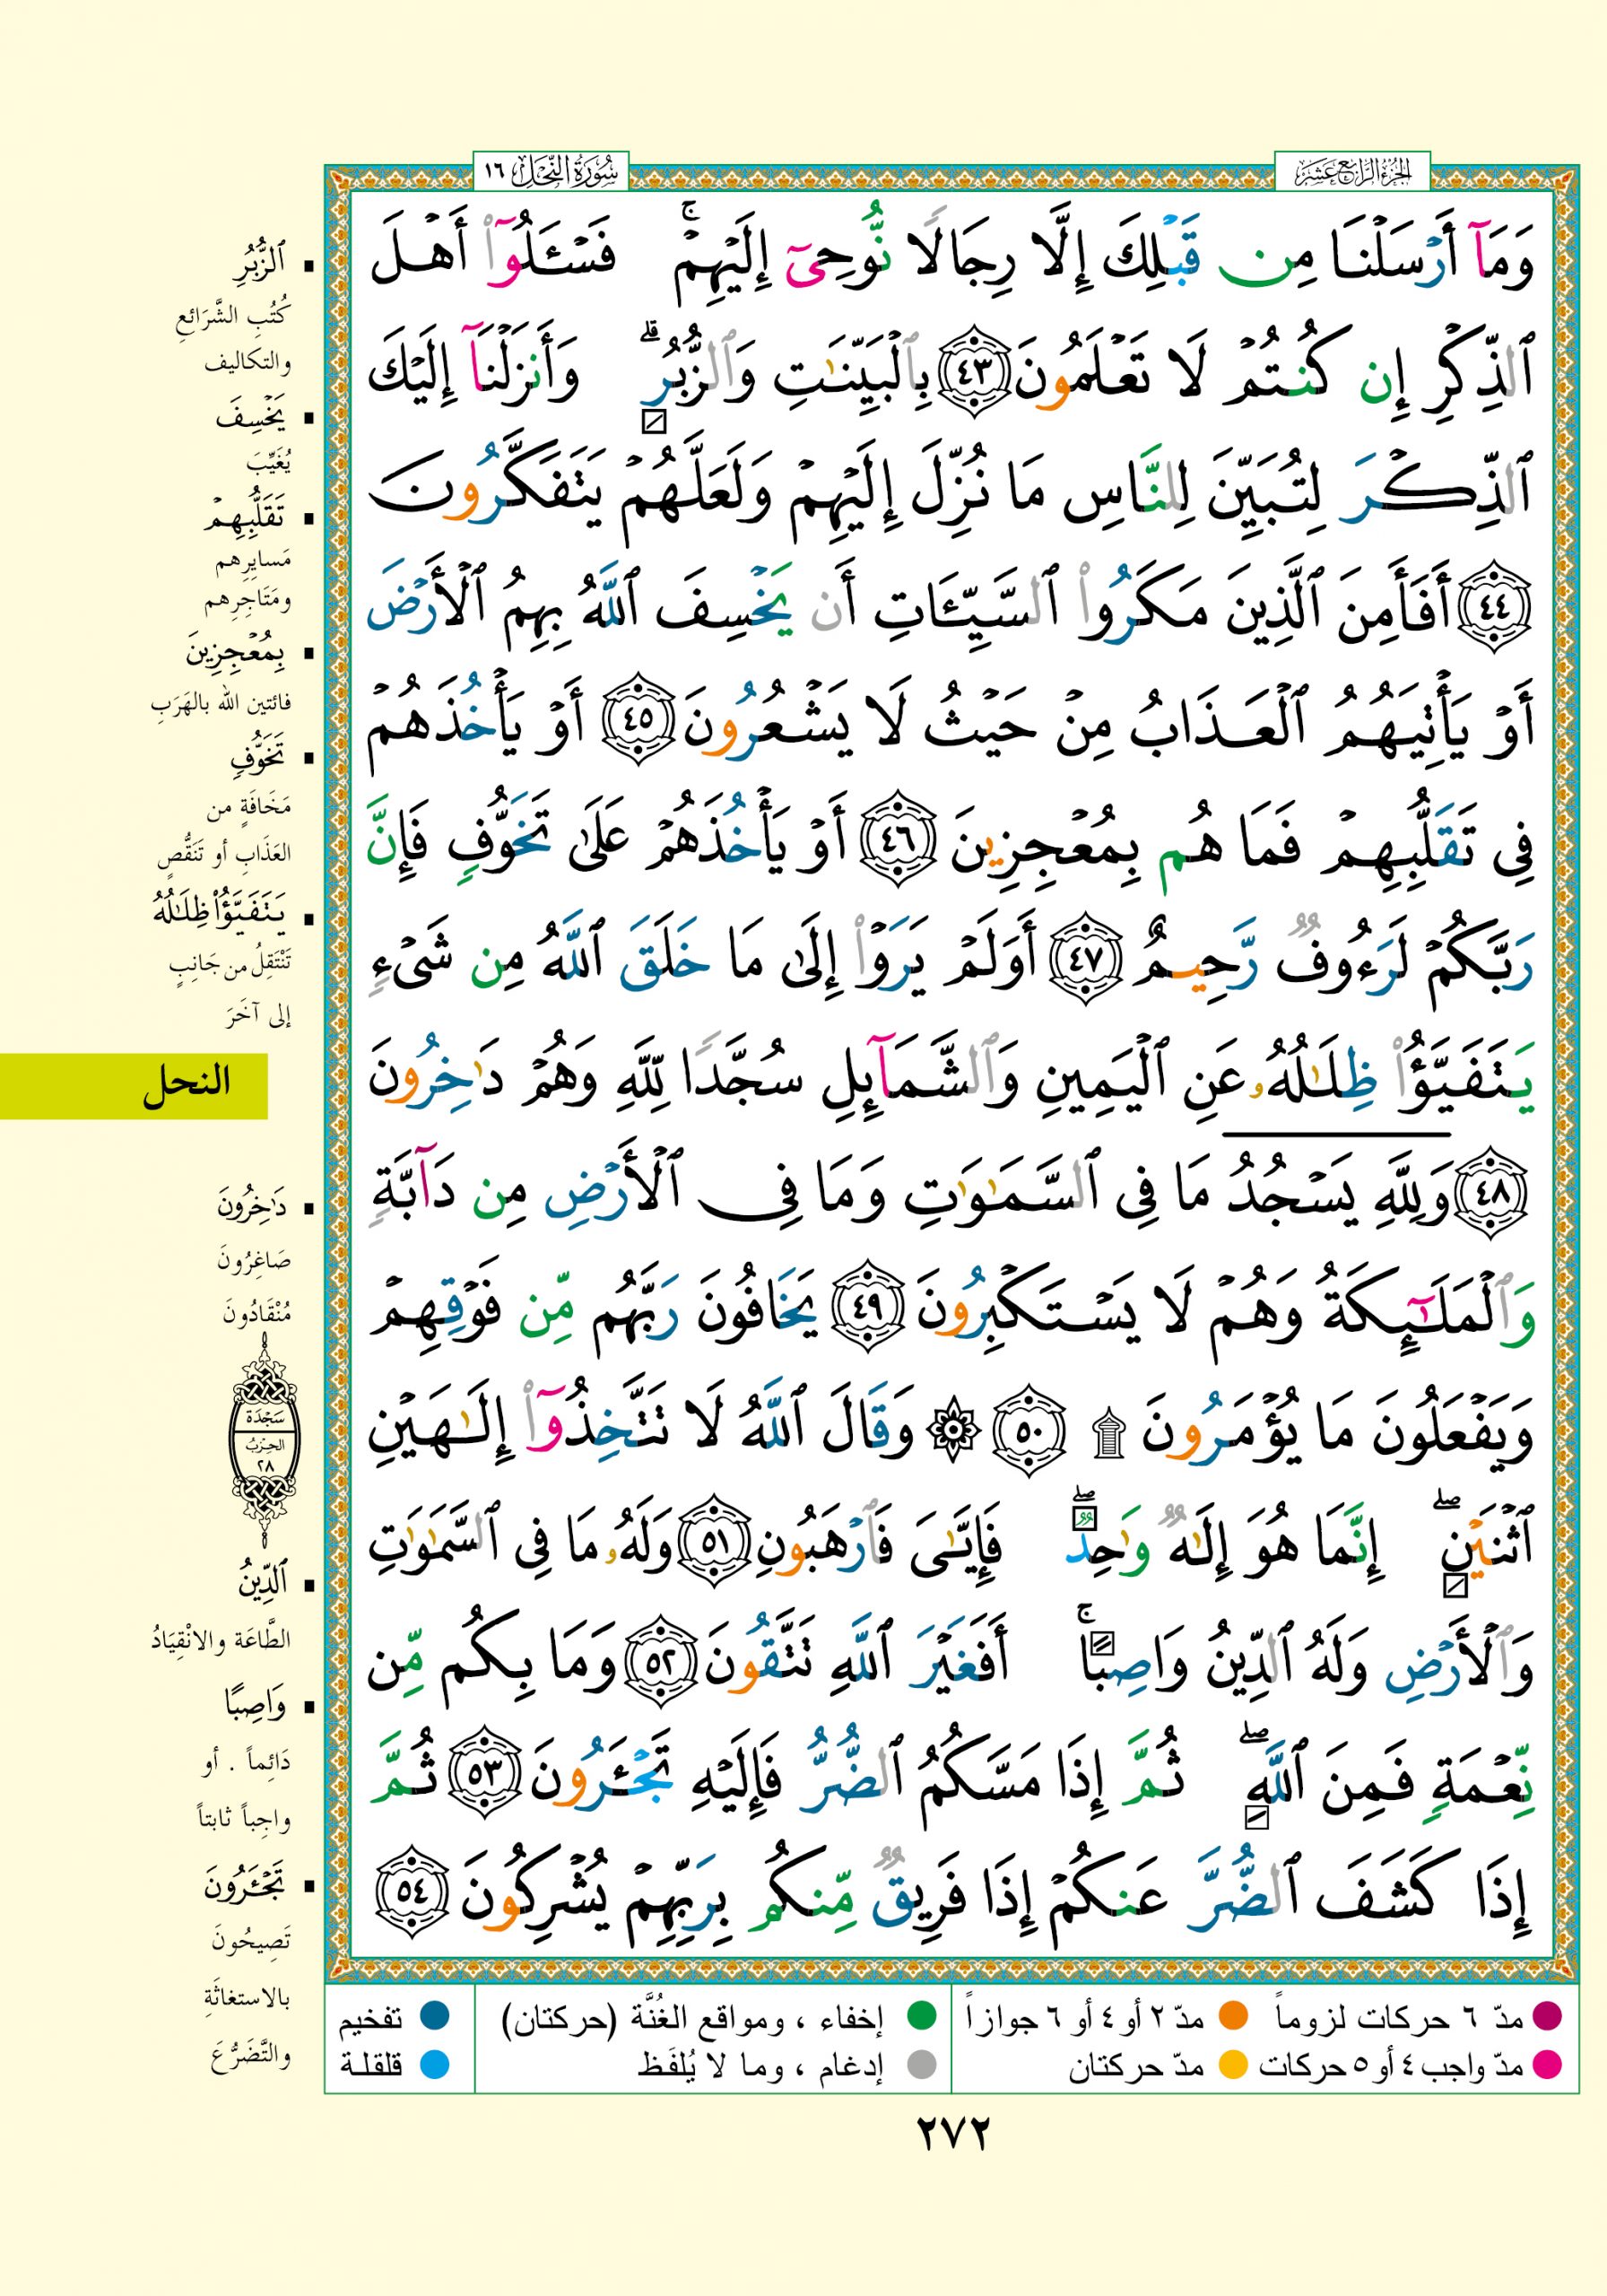 الجزء الرابع عشر
سورة النحل ١٦
وَمَآ أَرْسَلْنَا مِن قَبْلِكَ إِلَّا رِجَالًا نُّوحِىٓ إِلَيْهِمْ ۚ فَسْـَٔلُوٓا۟ أَهْلَ
ٱلذِّكْرِ إِن كُنتُمْ لَا تَعْلَمُونَ ٤٣ بِٱلْبَيِّنَـٰتِ وَٱلزُّبُرِ ۗ وَأَنزَلْنَآ إِلَيْكَ
ٱلذِّكْرَ لِتُبَيِّنَ لِلنَّاسِ مَا نُزِّلَ إِلَيْهِمْ وَلَعَلَّهُمْ يَتَفَكَّرُونَ
٤٤ أَفَأَمِنَ ٱلَّذِينَ مَكَرُوا۟ ٱلسَّيِّـَٔاتِ أَن يَخْسِفَ ٱللَّهُ بِهِمُ ٱلْأَرْضَ
أَوْ يَأْتِيَهُمُ ٱلْعَذَابُ مِنْ حَيْثُ لَا يَشْعُرُونَ ٤٥ أَوْ يَأْخُذَهُمْ
فِى تَقَلُّبِهِمْ فَمَا هُم بِمُعْجِزِينَ ٤٦ أَوْ يَأْخُذَهُمْ عَلَىٰ تَخَوُّفٍ فَإِنَّ
رَبَّكُمْ لَرَءُوفٌ رَّحِيمٌ ٤٧ أَوَلَمْ يَرَوْا۟ إِلَىٰ مَا خَلَقَ ٱللَّهُ مِن شَىْءٍ
يَتَفَيَّؤُا۟ ظِلَـٰلُهُۥ عَنِ ٱلْيَمِينِ وَٱلشَّمَآئِلِ سُجَّدًا لِّلَّهِ وَهُمْ دَٰخِرُونَ
٤٨ وَلِلَّهِ يَسْجُدُ مَا فِى ٱلسَّمَـٰوَٰتِ وَمَا فِى ٱلْأَرْضِ مِن دَآبَّةٍ
وَٱلْمَلَـٰٓئِكَةُ وَهُمْ لَا يَسْتَكْبِرُونَ ٤٩ يَخَافُونَ رَبَّهُم مِّن فَوْقِهِمْ
وَيَفْعَلُونَ مَا يُؤْمَرُونَ ۩ ٥٠ ۞ وَقَالَ ٱللَّهُ لَا تَتَّخِذُوٓا۟ إِلَـٰهَيْنِ
ٱثْنَيْنِ ۖ إِنَّمَا هُوَ إِلَـٰهٌ وَٰحِدٌ ۖ فَإِيَّـٰىَ فَٱرْهَبُونِ ٥١ وَلَهُۥ مَا فِى ٱلسَّمَـٰوَٰتِ
وَٱلْأَرْضِ وَلَهُ ٱلدِّينُ وَاصِبًا ۚ أَفَغَيْرَ ٱللَّهِ تَتَّقُونَ ٥٢ وَمَا بِكُم مِّن
نِّعْمَةٍ فَمِنَ ٱللَّهِ ۖ ثُمَّ إِذَا مَسَّكُمُ ٱلضُّرُّ فَإِلَيْهِ تَجْـَٔرُونَ ٥٣ ثُمَّ
إِذَا كَشَفَ ٱلضُّرَّ عَنكُمْ إِذَا فَرِيقٌ مِّنكُم بِرَبِّهِمْ يُشْرِكُونَ ٥٤
ٱلزُّبُرِ
كُتُبِ الشَّرَائِعِ
والتكاليف
يَخْسِفَ
يُغَيِّبَ
تَقَلُّبِهِمْ
مَسايِرِهم
ومَتَاجِرِهم
بِمُعْجِزِينَ
فائتين الله بالهَرَبِ
تَخَوُّفٍ
مَخَافَةٍ من
العَذَابِ أو تَنَقُّصٍ
يَتَفَيَّؤُا۟ ظِلَـٰلُهُ
تَنْتَقِلُ من جَانِبٍ
إلى آخَرَ
النحل
دَٰخِرُونَ
صَاغِرُونَ
مُنْقَادُونَ
سَجْدَة
الحِزْبُ
٢٨
ٱلدِّينُ
الطَّاعَة والانْقِيَادُ
وَاصِبًا
دَائِماً . أو
واجِباً ثابتاً
تَجْـَٔرُونَ
تَصِيحُونَ
بالاستغاثَةِ
والتَّضَرُّعَ
مدّ ٦ حركات لزوماً مدّ ٢ أو ٤ أو ٦ جوازاً إخفاء ، ومواقع الغُنَّة (حركتان) تفخيم
مدّ واجب ٤ أو ٥ حركات مدّ حركتان إدغام ، وما لا يُلفَظ قلقلة
٢٧٢